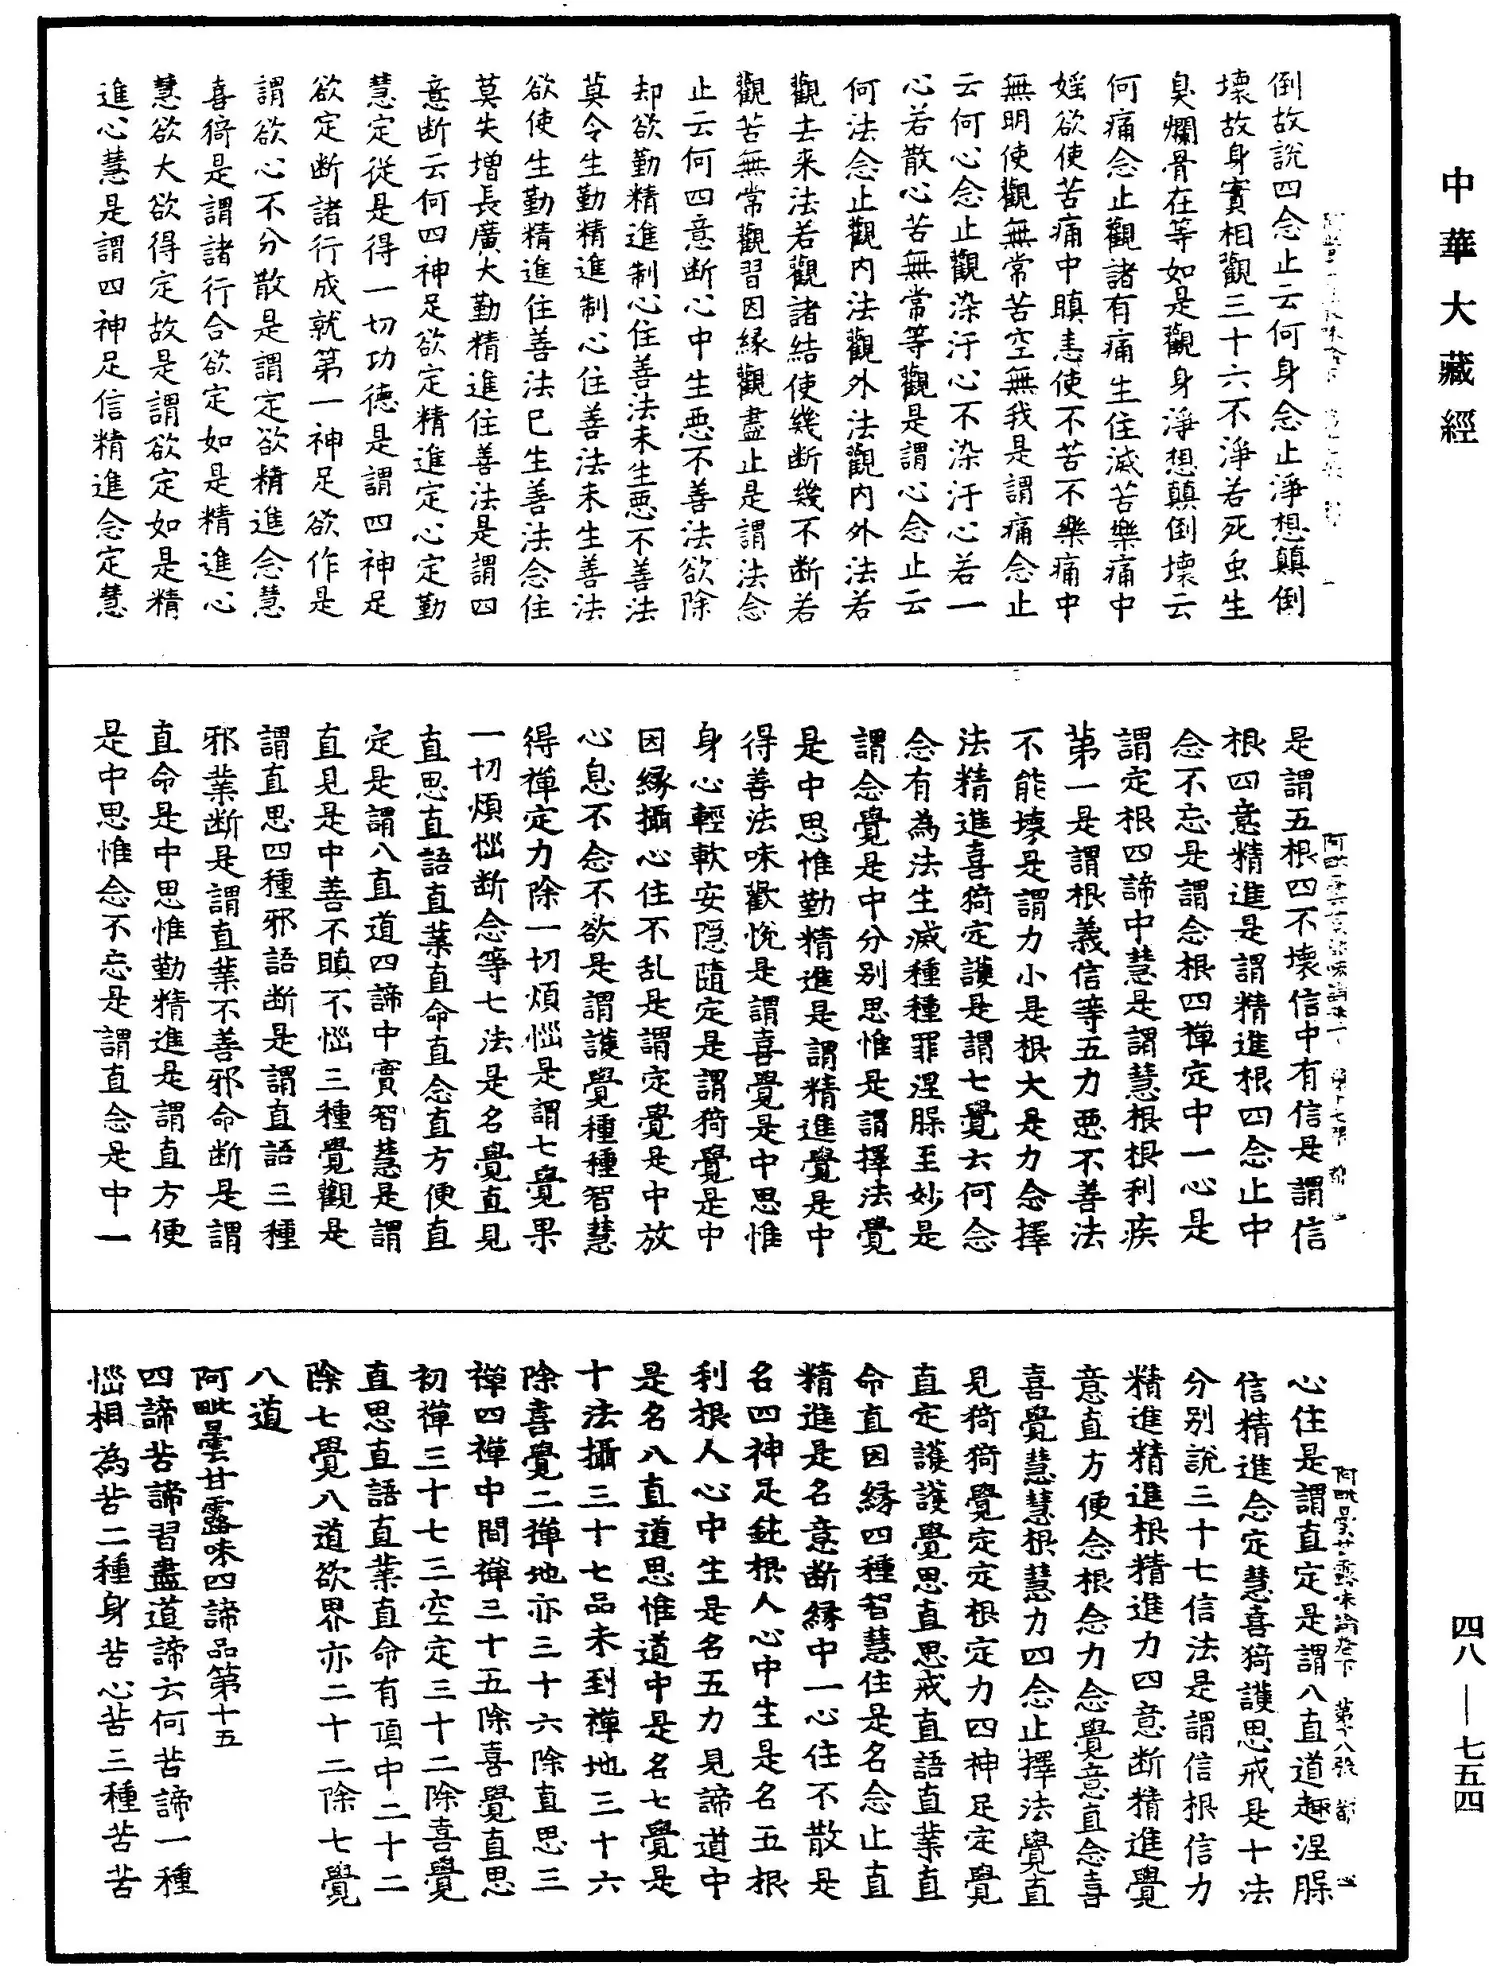 中華大藏經
倒故說四念止云何身念止淨想顛倒
壞故身實相觀三十六不淨若死虫生
臭爛骨在等如是觀身淨想顛倒壞云
何痛念止觀諸有痛生住滅苦樂痛中
婬欲使苦痛中瞋恚使不苦不樂痛中
無明使觀無常苦空無我是謂痛念止
云何心念止觀染汙心不染汙心若一
心若散心苦無常等觀是謂心念止云
何法念止觀內法觀外法觀內外法若
觀去来法若觀諸結使幾断幾不断若
觀苦無常觀習因緣觀盡止是謂法念
止云何四意断心中生悪不善法欲除
却欲勤精進制心住善法未生悪不善法
莫令生勤精進制心住善法未生善法
欲使生勤精進住善法已生善法念住
莫失增長廣大勤精進住善法是謂四
意断云何四神足欲定精進定心定勤
慧定從是得一切功德是謂四神足
欲定断諸行成就第一神足欲作是
謂欲心不分散是謂定欲精進念慧
喜猗是謂諸行合欲定如是精進心
慧欲大欲得定故是謂欲定如是精
進心慧是謂四神足信精進念定慧
是謂五根四不壞信中有信是謂信
根四意精進是謂精進根四念止中
念不忘是謂念根四禪定中一心是
謂定根四諦中慧是謂慧根根利疾
第一是謂根義信等五力悪不善法
不能壞是謂力小是根大是力念擇
法精進喜猗定護是謂七覺云何念
念有為法生滅種種罪涅槃至妙是
謂念覺是中分別思惟是謂擇法覺
是中思惟勤精進是謂精進覺是中
得善法味歡悅是謂喜覺是中思惟
身心輕軟安隱隨定是謂猗覺是中
因緣攝心住不乱是謂定覺是中放
心息不念不欲是謂護覺種種智慧
得禪定力除一切煩惱是謂七覺果
一切煩惱断念等七法是名覺直見
直思直語直業直命直念直方便直
定是謂八直道四諦中實智慧是謂
直見是中善不瞋不惱三種覺觀是
謂直思四種邪語断是謂直語三種
邪業断是謂直業不善邪命断是謂
直命是中思惟勤精進是謂直方便
是中思惟念不忘是謂直念是中一
阿毗曇甘露味論卷下　第十八張
心住是謂直定是謂八直道趣涅槃
信精進念定慧喜猗護思戒是十法
分別說三十七信法是謂信根信力
精進精進根精進力四意断精進覺
意直方便念根念力念覺意直念喜
喜覺慧慧根慧力四念止擇法覺直
見猗猗覺定定根定力四神足定覺
直定護護覺思直思戒直語直業直
命直因緣四種智慧住是名念止直
精進是名意断緣中一心住不散是
名四神足鈍根人心中生是名五根
利根人心中生是名五力見諦道中
是名八直道思惟道中是名七覺是
十法攝三十七品未到禪地三十六
除喜覺二禪地亦三十六除直思三
禪四禪中間禪三十五除喜覺直思
初禪三十七三空定三十二除喜覺
直思直語直業直命有頂中二十二
除七覺八道欲界亦二十二除七覺
八道
阿毗曇甘露味四諦品第十五
四諦苦諦習盡道諦云何苦諦一種
惱相為苦二種身苦心苦三種苦苦
四八——七五四